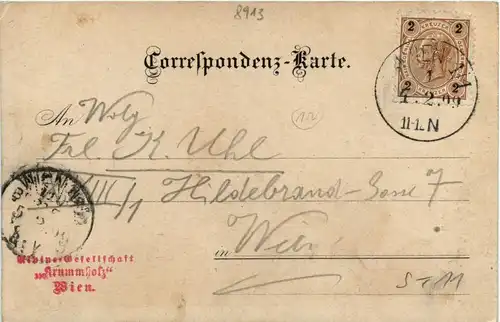 8943
Correspondenz-Karte.
2 KREUZER 2
2 2
WIEN
1
4.2.00
11-1.N
An Wolg
12
Frl. K. Uhl
XVIII/1 Hildebrand-Gasse 7
in Wien
WIEN
Alpine-Gesellschaft
"Krummholz"
Wien.